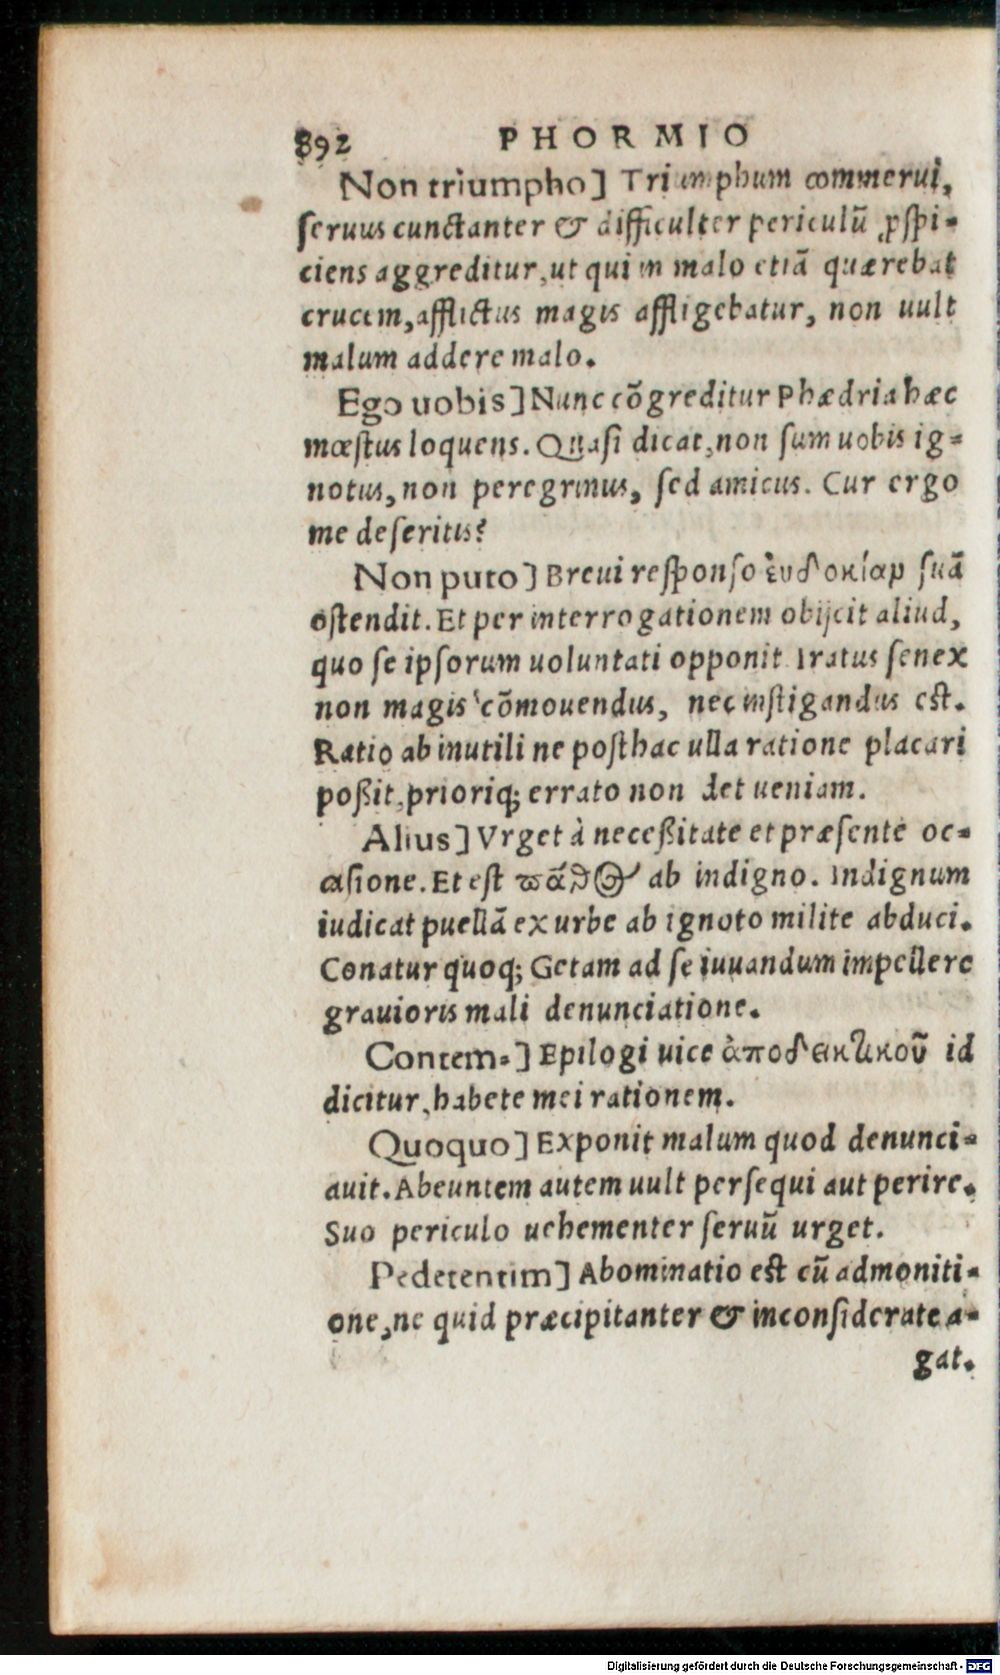 892 PHORMIO
Non triumpho] Triumphum commerui,
seruus cunctanter & difficulter periculū ꝓspi-
ciens aggreditur, ut qui in malo etiā quærebat
crucem, afflictus magis affligebatur, non uult
malum addere malo.
Ego uobis] Nunc cōgreditur Phædria hæc
mœstus loquens. Quasi dicat, non sum uobis ig-
notus, non peregrinus, sed amicus. Cur ergo
me deseritis?
Non puto] Breui responso ἐυδοκίαν suā
ostendit. Et per interrogationem obijcit aliud,
quo se ipsorum uoluntati opponit. Iratus senex
non magis cōmouendus, nec instigandus est.
Ratio ab inutili ne posthac ulla ratione placari
poßit, prioriq; errato non det ueniam.
Alius] Vrget à neceßitate et præsente oc-
casione. Et est πάθος ab indigno. Indignum
iudicat puellā ex urbe ab ignoto milite abduci.
Conatur quoq; Getam ad se iuuandum impellere
grauioris mali denunciatione.
Contem-] Epilogi uice ἀποδεικτικοῦ id
dicitur, habete mei rationem.
Quoquo] Exponit malum quod denunci-
auit. Abeuntem autem uult persequi aut perire.
Suo periculo uehementer seruū urget.
Pedetentim] Abominatio est cū admoniti-
one, ne quid præcipitanter & inconsiderate a-
gat.
Digitalisierung gefördert durch die Deutsche Forschungsgemeinschaft - DFG